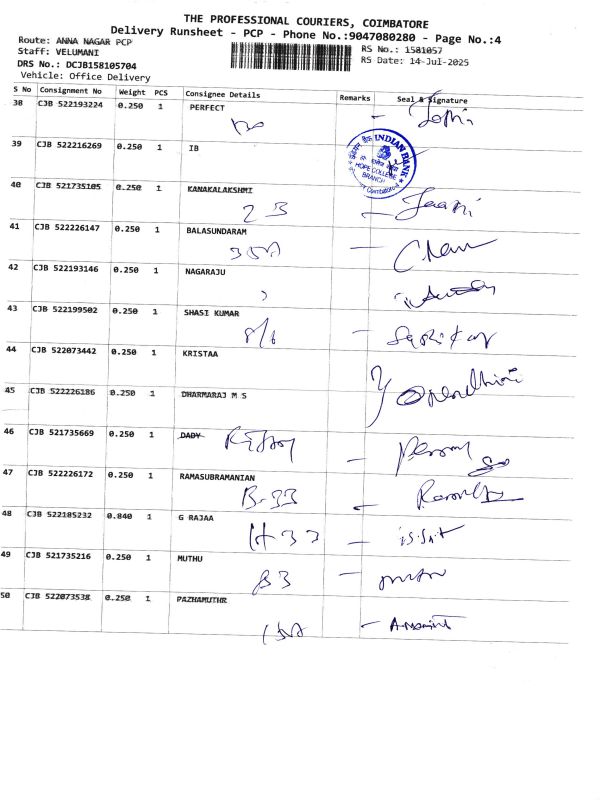 THE PROFESSIONAL COURIERS, COIMBATORE
Delivery Runsheet - PCP - Phone No.:9047080280 - Page No.:4
Route: ANNA NAGAR PCP
Staff: VELUMANI
DRS No.: DCJB158105704
Vehicle: Office Delivery
RS No.: 1581057
RS Date: 14-Jul-2025
S No Consignment No Weight PCS Consignee Details Remarks Seal & Signature
38 CJB 522193224 0.250 1 PERFECT
39 CJB 522216269 0.250 1 IB
INDIAN BANK
HOPE COLLEGE
BRANCH
Coimbatore
40 CJB 521735105 0.250 1 KANAKALAKSHMI
23
41 CJB 522226147 0.250 1 BALASUNDARAM
42 CJB 522193146 0.250 1 NAGARAJU
43 CJB 522199502 0.250 1 SHASI KUMAR
8/6
44 CJB 522073442 0.250 1 KRISTAA
45 CJB 522226186 0.250 1 DHARMARAJ M S
46 CJB 521735669 0.250 1 DADY
47 CJB 522226172 0.250 1 RAMASUBRAMANIAN
B-33
48 CJB 522185232 0.840 1 G RAJAA
H 33
49 CJB 521735216 0.250 1 MUTHU
50 CJB 522073538 0.250 1 PAZHAMUTHR